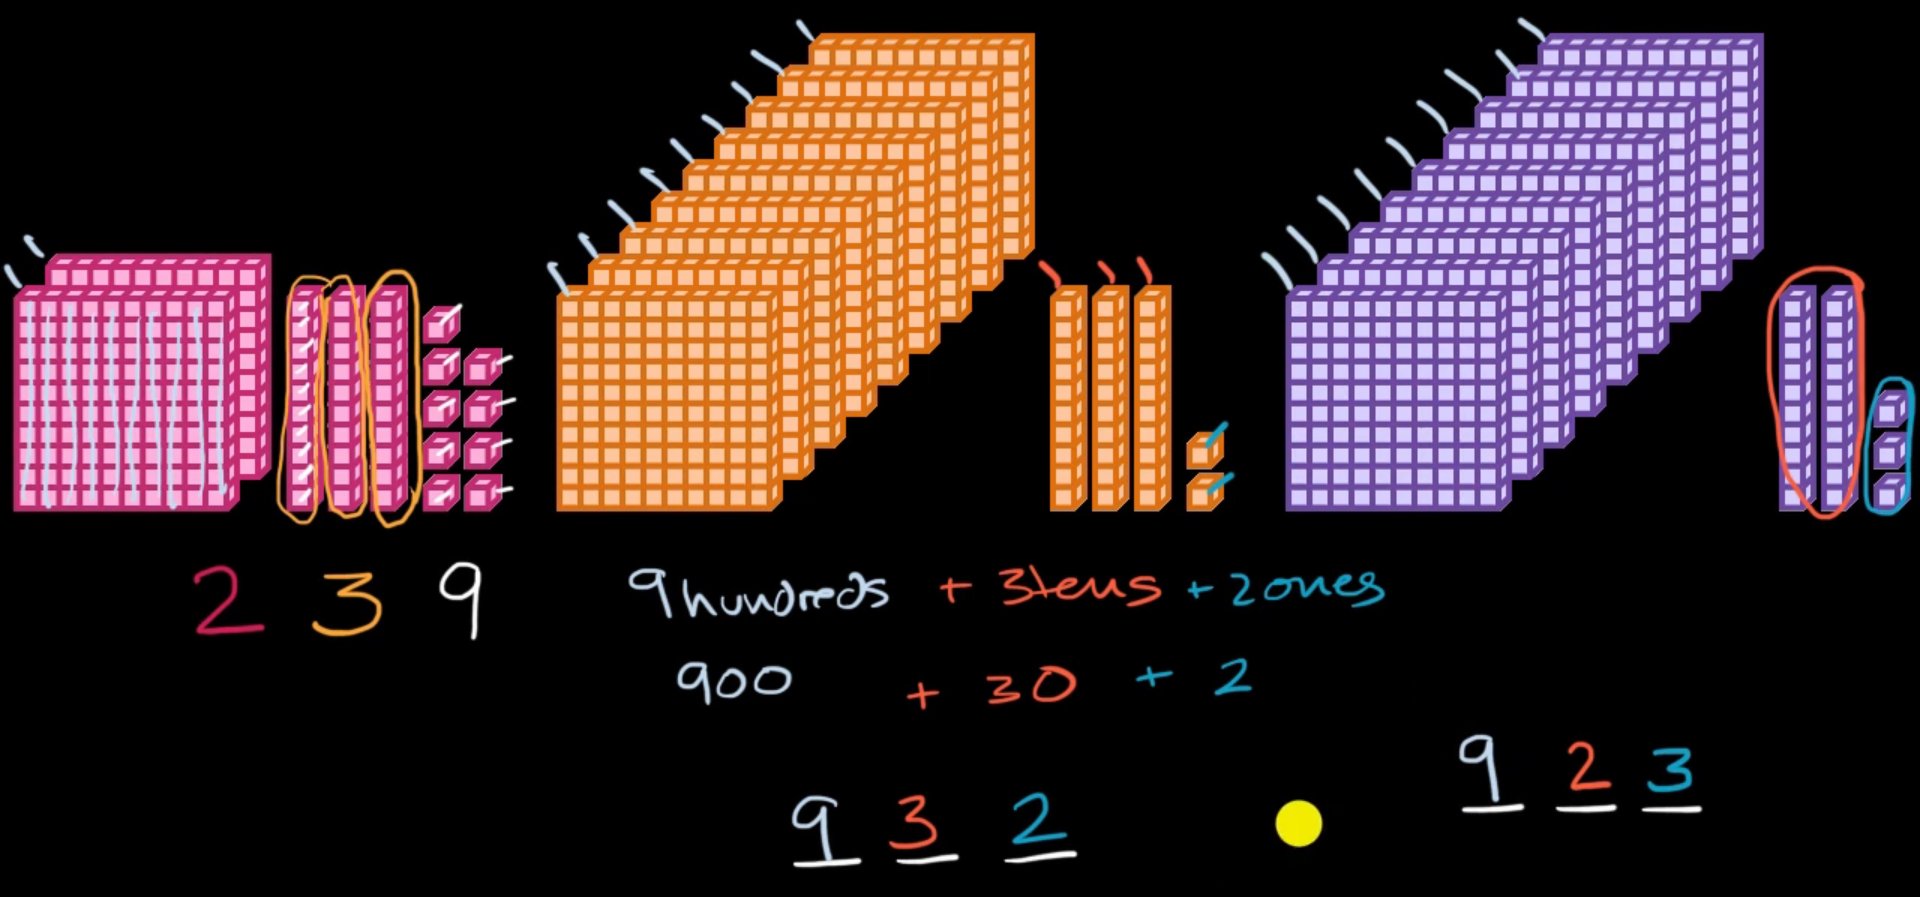 2 3 9
9 hundreds + 3 tens + 2 ones
900 + 30 + 2
9 2 3
9 3 2